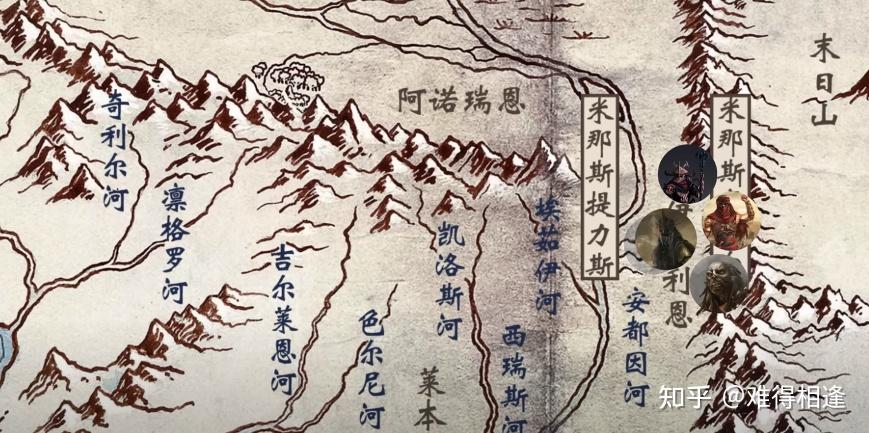 末日山
阿诺瑞恩
米那斯提力斯
米那斯
奇利尔河
凛格罗河
吉尔莱恩河
色尔尼河
凯洛斯河
西瑞斯河
埃茹伊河
安都因河
利恩
莱本
知乎 @难得相逢